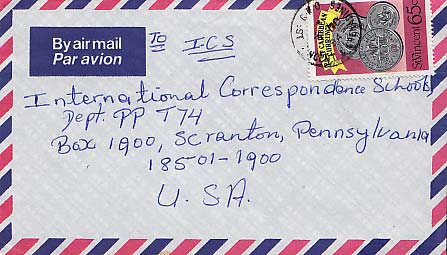 By air mail
Par avion
TO ICS
EAST CARIBBEAN
CURRENCY
St Vincent 65c
International Correspondence Schools
Dept. PP T74
Box 1900, Scranton, Pennsylvania
18501-1900
U.S.A.